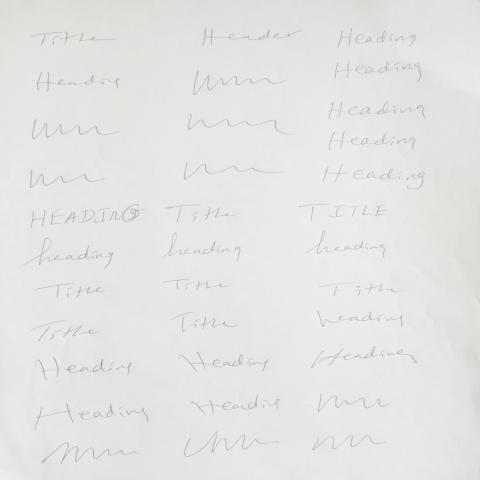 Title Header Heading
Heading Heading
Heading
Heading
Heading
HEADING Title TITLE
heading heading heading
Title Title Title
Title Title heading
Heading Heading Heading
Heading Heading